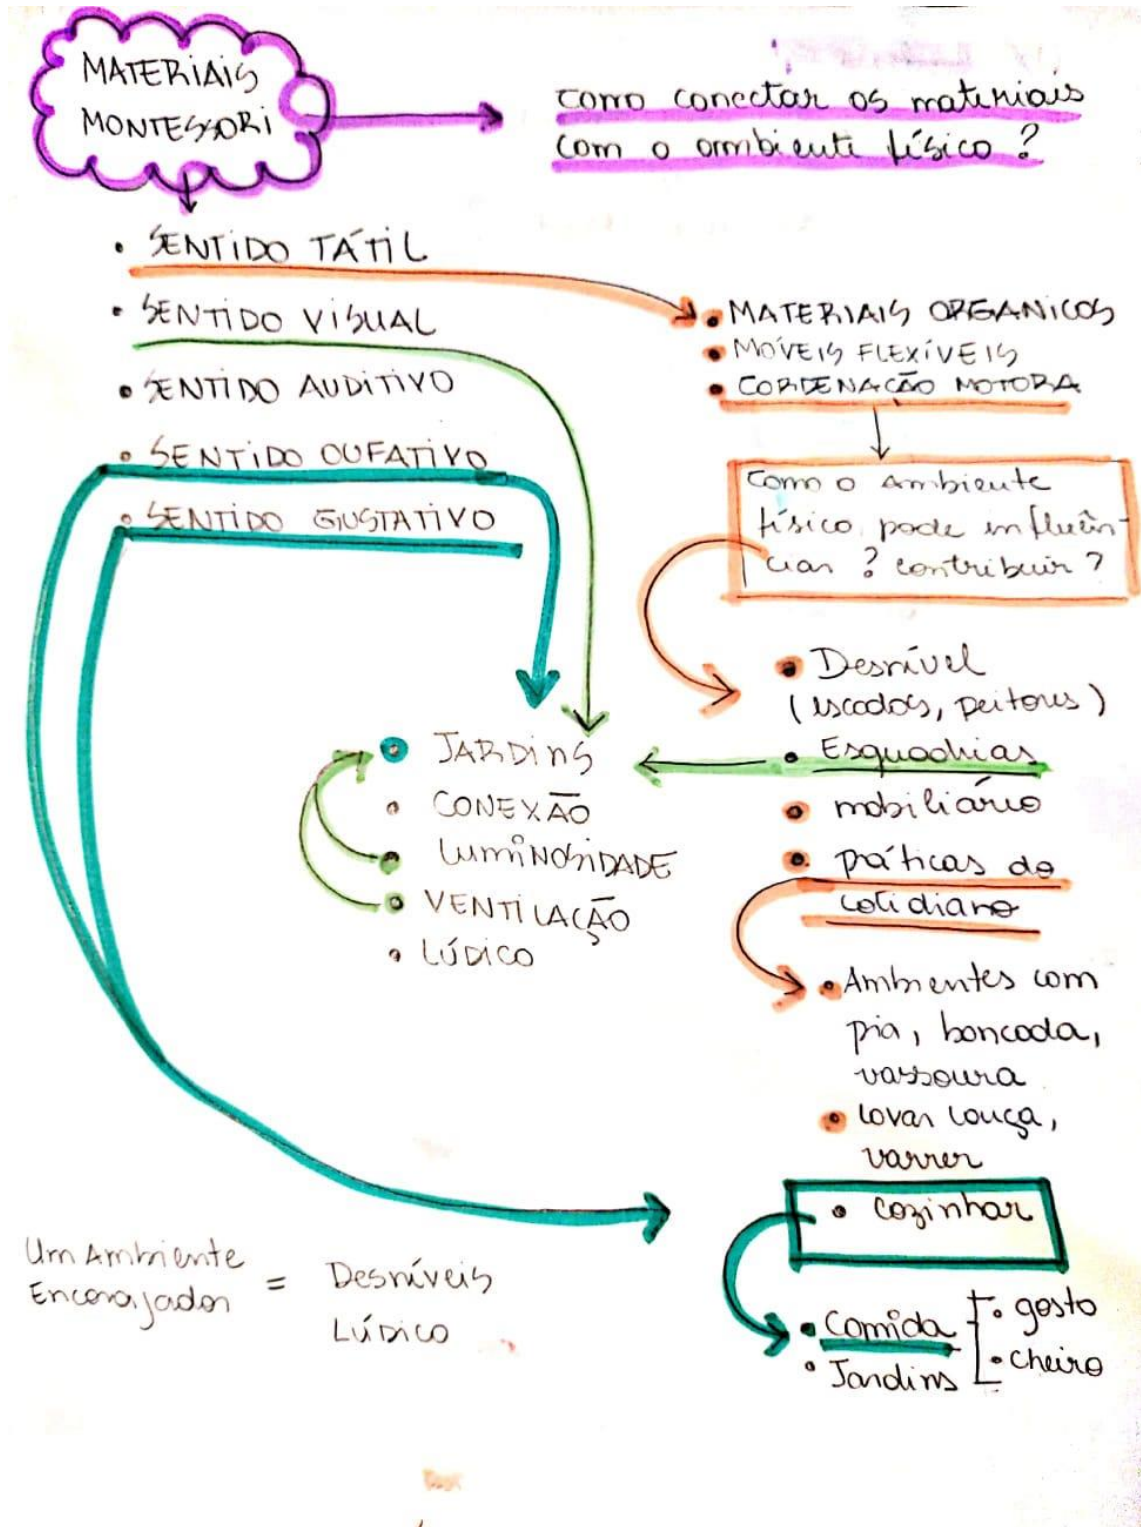 MATERIAIS
MONTESSORI
como conectar os materiais
com o ambiente físico?
• SENTIDO TÁTIL
• SENTIDO VISUAL
• SENTIDO AUDITIVO
• SENTIDO OUFATIVO
• SENTIDO GUSTATIVO
• MATERIAIS ORGANICOS
• MÓVEIS FLEXÍVEIS
• CORDENAÇÃO MOTORA
Como o ambiente
físico pode influên-
ciar? contribuir?
• Desnível
(escadas, peitores)
• Esquadrias
• mobiliário
• práticas do
cotidiano
• JARDINS
• CONEXÃO
• LUMINOSIDADE
• VENTILAÇÃO
• LÚDICO
• Ambientes com
pia, bancada,
vassoura
• lavar louça,
varrer
• cozinhar
• Comida
• Jardins
• gosto
• cheiro
Um Ambiente
Encorajador
=
Desníveis
LÚDICO